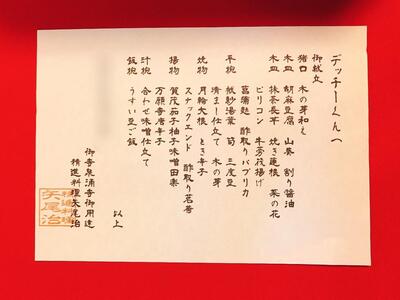 デッチーくんへ
御献立
猪口 木の芽和え
木皿 胡麻豆腐 山葵 割り醤油
木皿 抹茶長芋 焼き蓮根 菜の花
ピリコン 牛蒡茂揚げ
菖蒲麩 酢取りパプリカ
平椀 紙妙湯葉 筍 三度豆
清まし仕立て 木の芽
焼物 月輪大根 とき辛子
スナックエンド 酢取り茗荷
揚物 賀茂茄子柚子味噌田楽
万願寺唐辛子
汁椀 合わせ味噌仕立て
飯椀 うすい豆ご飯
以上
御寺泉涌寺御用達
精進料理矢尾治
精進料理
矢尾治